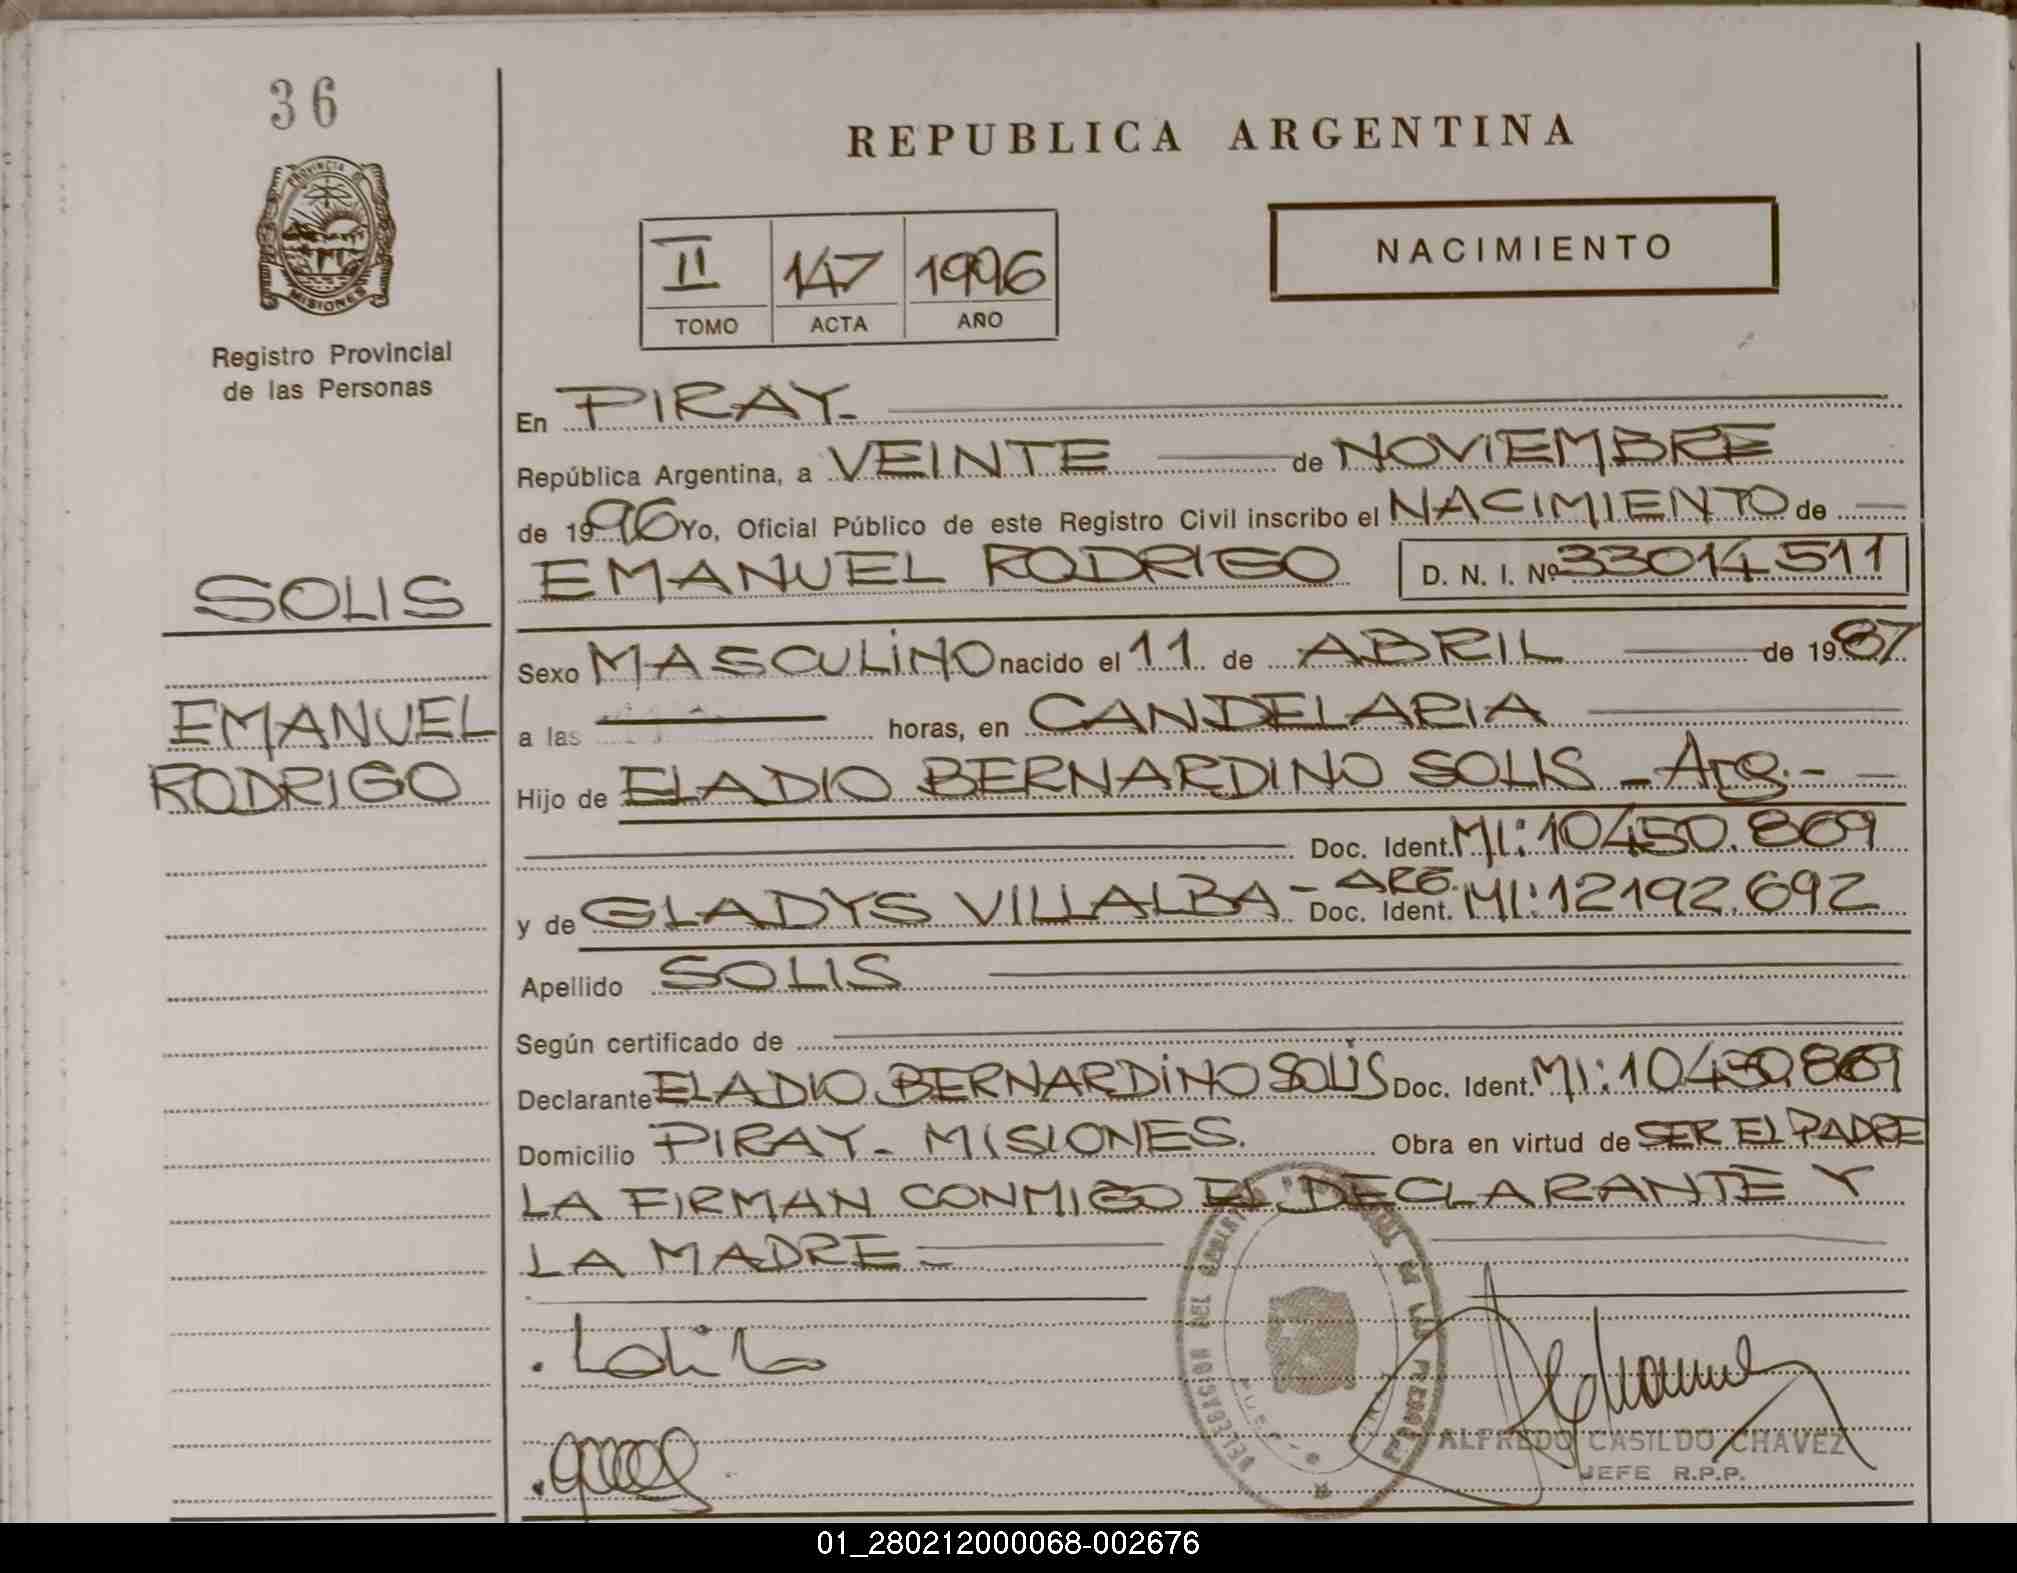 36
PROVINCIA DE
MISIONES
Registro Provincial
de las Personas
SOLIS
EMANUEL
RODRIGO
REPUBLICA ARGENTINA
II 147 1996
TOMO ACTA AÑO
NACIMIENTO
En PIRAY-
República Argentina, a VEINTE de NOVIEMBRE
de 1996 Yo, Oficial Público de este Registro Civil inscribo el NACIMIENTO de
EMANUEL RODRIGO D. N. I. Nº 33014511
Sexo MASCULINO nacido el 11 de ABRIL de 1987
a las horas, en CANDELARIA
Hijo de ELADIO BERNARDINO SOLIS - Arg.-
Doc. Ident. MI: 10450.869
y de GLADYS VILLALBA - ARG. Doc. Ident. MI: 12192.692
Apellido SOLIS
Según certificado de
Declarante ELADIO BERNARDINO SOLIS Doc. Ident. MI: 10450869
Domicilio PIRAY- MISIONES. Obra en virtud de SER EL PADRE
LA FIRMAN CONMIGO EL DECLARANTE Y
LA MADRE=
ALFREDO CASILDO CHAVEZ
JEFE R.P.P.
01_280212000068-002676